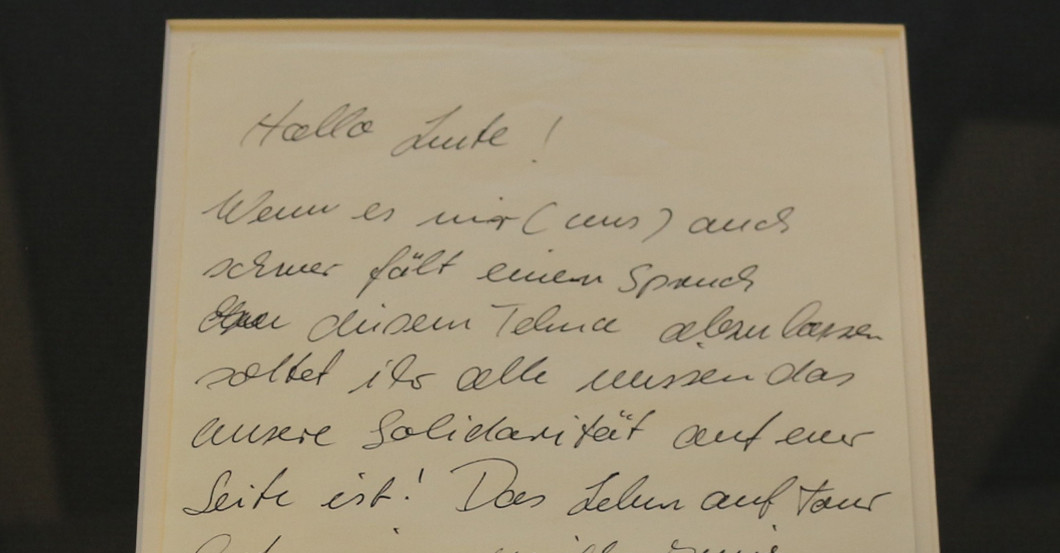 Hallo Leute!
Wenn es mir (uns) auch
schwer fält einen Spruch
diesem Tehma abzulassen
soltet ihr alle wissen das
unsere Solidarität auf euer
Seite ist! Das Leben auf Tour